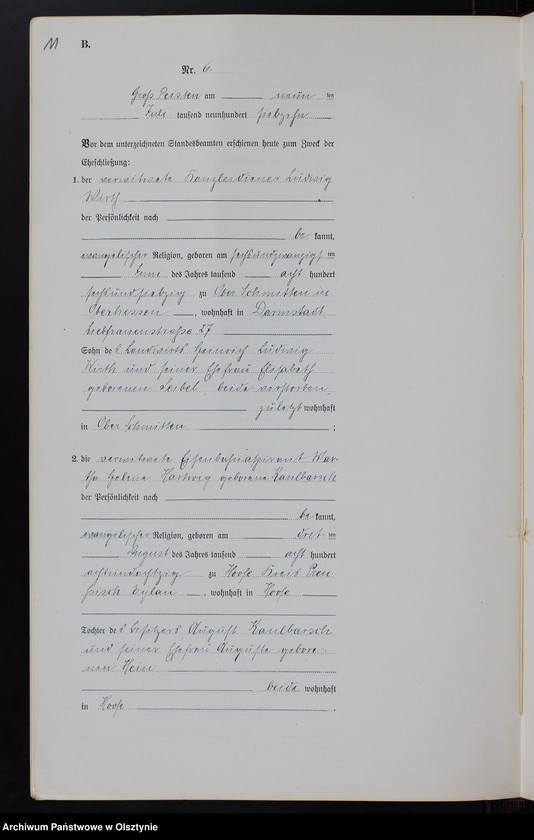 11
B.
Nr. 6
Groß Peisten am neun ten
Juli tausend neunhundert siebzehn
Vor dem unterzeichneten Standesbeamten erschienen heute zum Zweck der
Eheschließung:
1. der verwitwete Kanzleidiener Ludwig
Wirth
der Persönlichkeit nach
be kannt,
evangelischer Religion, geboren am sechsundzwanzigs ten
Juni des Jahres tausend acht hundert
sechsundsiebzig zu Ober Schmitten in
Oberhessen, wohnhaft in Darmstadt,
Liebfrauenstraße 27
Sohn des Landwirts Heinrich Ludwig
Wirth und seiner Ehefrau Elisabeth
geborenen Seibel, beide verstorben,
zuletzt wohnhaft
in Ober Schmitten ;
2. die verwitwete Eisenbahnaspirant Mar-
tha Helene Hartwig geborene Kaulbarsch
der Persönlichkeit nach
be kannt,
evangelischer Religion, geboren am drit ten
August des Jahres tausend acht hundert
achtundachtzig zu Hoofe Kreis Preu-
ßisch Eylau, wohnhaft in Hoofe
Tochter des Besitzers August Kaulbarsch
und seiner Ehefrau Auguste gebore-
nen Hein
beide wohnhaft
in Hoofe .
Archiwum Państwowe w Olsztynie